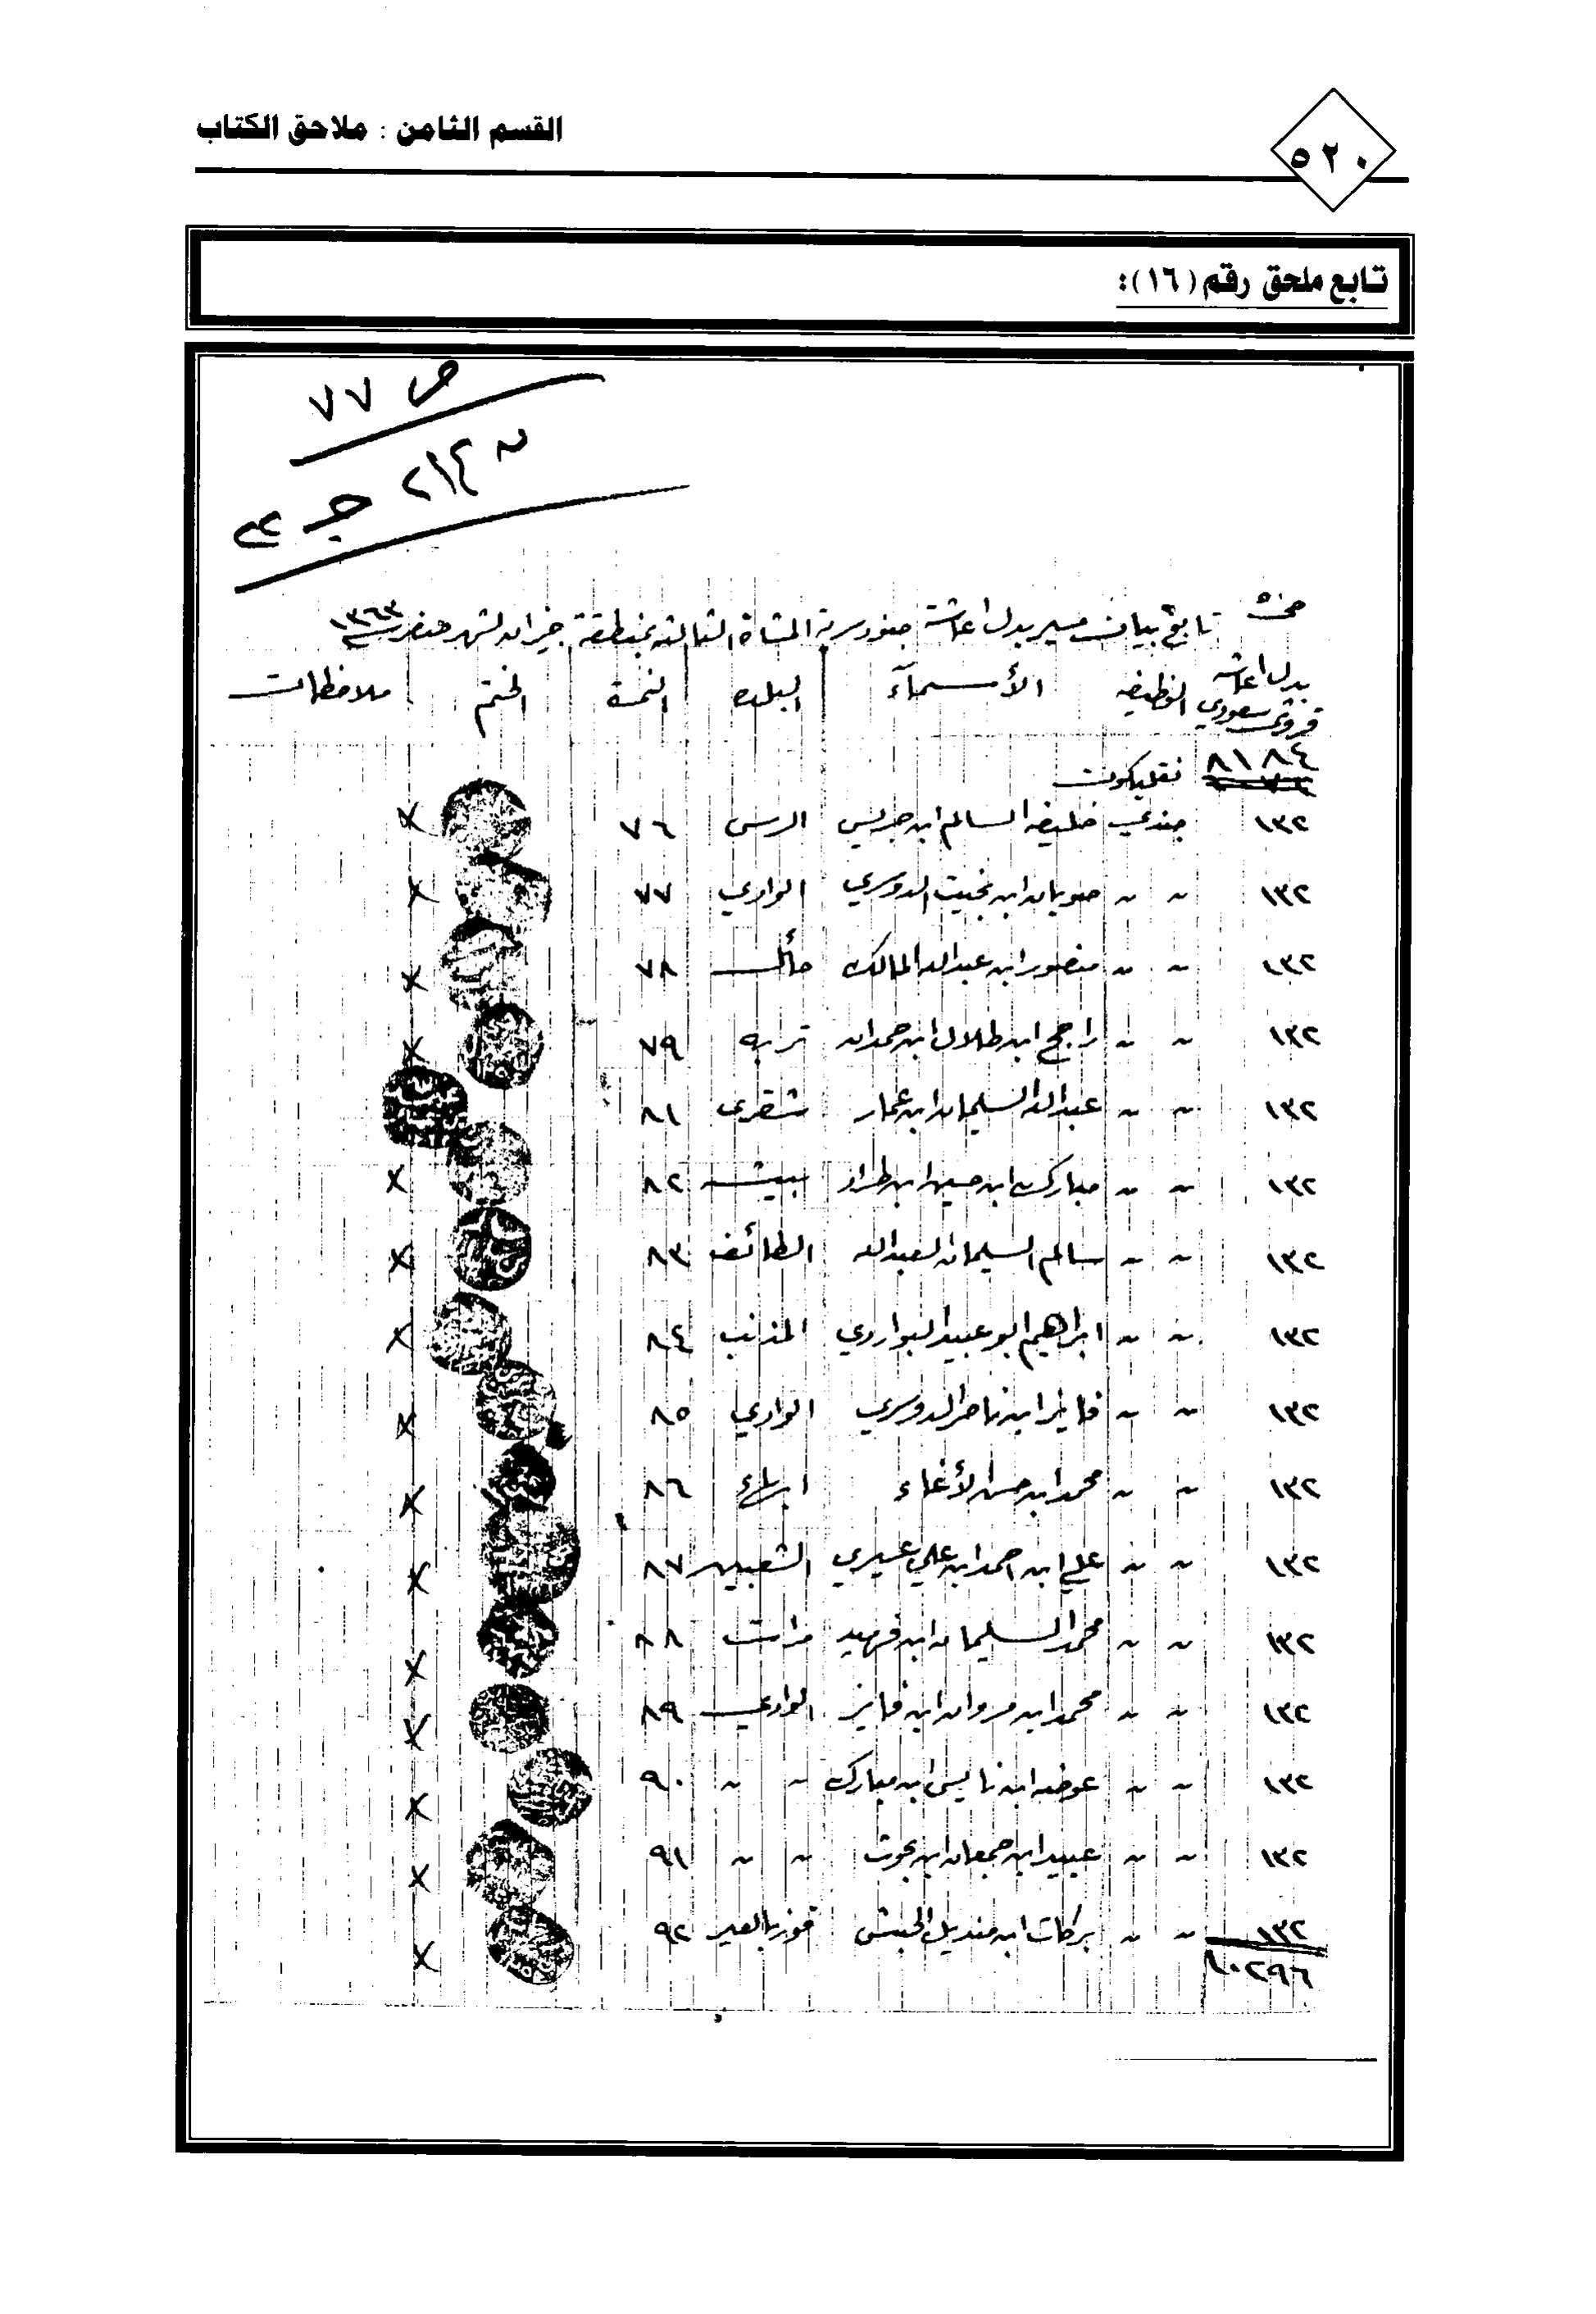 ٥٢٠
القسم الثامن : ملاحق الكتاب
تابع ملحق رقم (١٦):
ص ٧٧
تابع بيان مسير بدل اعاشة جنود سرية المشاة الثالثة بمنطقة جيزان لشهر صفر ١٣٦٣
بدل اعاشه قروش سعودي الوظيفه الأسمآء البلده النمرة الختم ملاحظات
٨١٨٤
١٣٢ جندي خليفه السالم ابن جريس الرس ٧٦ X
١٣٢ " " صويان ابن بخيت الدوسري الوادي ٧٧ X
١٣٢ " " منصور ابن عبدالله المالك حائل ٧٨ X
١٣٢ " " راجح ابن طلال ابن حمدان تربه ٧٩ X
١٣٢ " " عبدالله السليمان ابن عمار شقرى ٨١
١٣٢ " " مبارك ابن حسين ابن طراد بيشه ٨٢ X
١٣٢ " " سالم السليمان العبدالله الطائف ٨٣ X
١٣٢ " " ابراهيم ابو عبيد البواردي المذنب ٨٤ X
١٣٢ " " فايز ابن ناصر الدوسري الوادي ٨٥ X
١٣٢ " " محمد ابن حسن ٨٦ X
١٣٢ " " علي ابن احمد ابن علي عسيري الشعبين ٨٧ X
١٣٢ " " محمد السليمان ابن فهيد مرات ٨٨ X
١٣٢ " " محمد ابن مروان ابن فايز الوادي ٨٩ X
١٣٢ " " عوضه ابن ابن مبارك " " ٩٠ X
١٣٢ " " عبيد ابن جمعان ابن " " ٩١ X
١٣٢ " " بركات ابن منديل الحبشي ٩٢ X
١٠٢٩٦